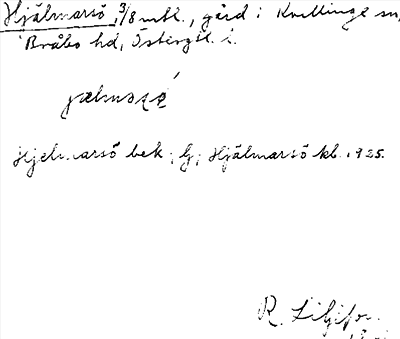 Hjälmarsö, 3/8 mtl., gård i Kvillinge sn,
Bråbo hd, Östergötl. l.
Hjelmarsö bek, G, Hjälmarsö kb. 1925.
R. Liljefor